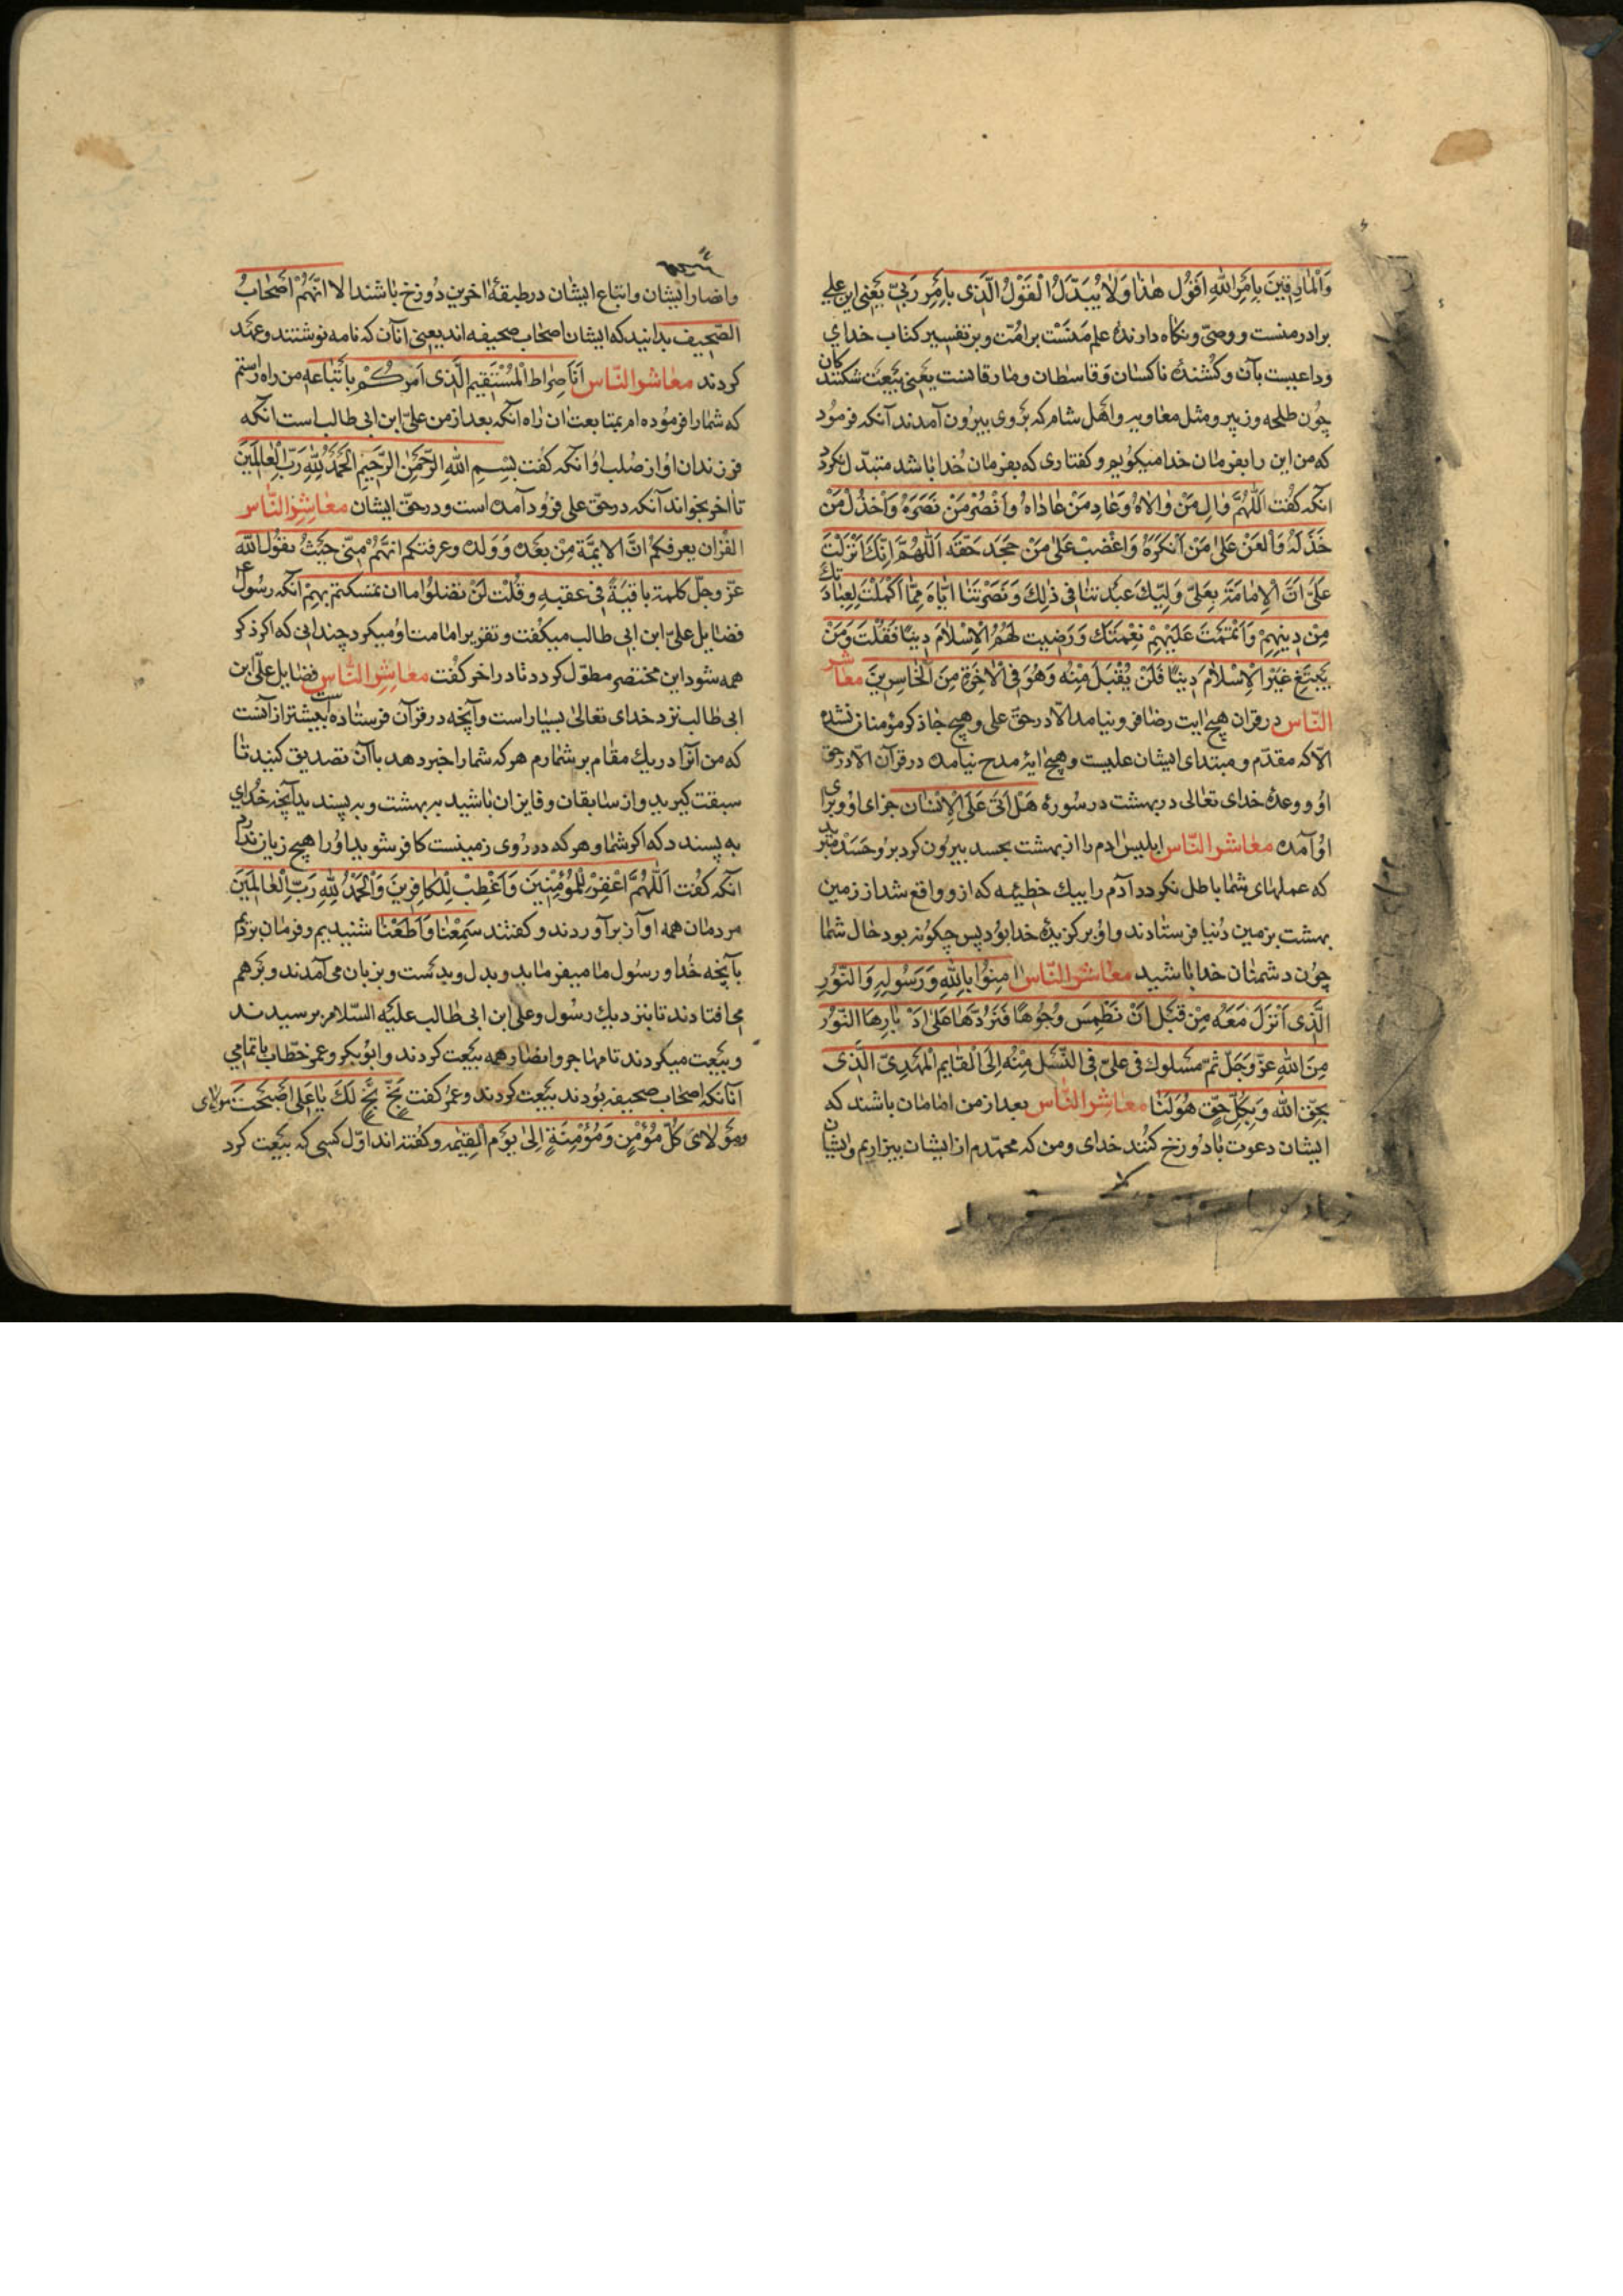 وَالْمارِقینَ بِاَمْرِاللهِ اَقُولُ هٰذا وَلاٰ یُبَدَّلُ الْقَوْلُ الَّذی بِاَمْرِ رَبّی یَعْنی این علی
برادر منست و وصیّ و نکاه دارندهٔ علم مَنَسْت بر امُتّ و بر تفسیر کتاب خدای
وداعیست بآن و کُشندهٔ ناکسان وَقاسطان و مارقانست یَعنی بَیْعَت شکنندکان
چُون طلحه و زبیر و مثل معاویه و اهْل شام که بَرْوی بیرُون آمدند آنکه فرموُد
که من این را بفرمان خدا میکوُیم و کفتاری که بفرمان خُدا باشد متبدّل نکردد
انکه کفُت اَللّٰهُمَّ والِ مَنْ والاٰهُ وَعٰادِ مَنْ عٰاداٰهُ وَانْصُرْ مَنْ نَصَرَهُ وَاخْذُلْ مَنْ
خَذَلَهُ وَالْعَنْ عَلیٰ مَنْ اَنْکَرَهُ وَاغْضِبْ عَلیٰ مَنْ جَحَدَ حَقَّهُ اَللّٰهُمَّ اِنَّکَ اَنْزَلْتَ
عَلَیَّ اَنَّ الْاِمامَةَ بِعَلیٍّ وَلِیِّکَ عِنْد فی ذٰلِکَ اِیّاهُ مِمّا اَکْمَلْتَ لِعِبادِکَ
مِنْ دِینِهِمْ وَاَتْمَمْتَ عَلَیْهِمْ نِعْمَتَکَ وَرَضِیت لَهُمُ الْاِسْلاٰمَ دِینًا فَقُلْتَ وَمَنْ
یَبْتَغِ غَیْرَ الْاِسْلاٰمِ دِینًا فَلَنْ یُقْبَلَ مِنْهُ وَهُوَ فِی الْاٰخِرَةِ مِنَ الْخاسِرِینَ مَعٰاشِرَ
النّاس در قران هیچ ایت رضا فرو نیامد الّا در حقّ علی و هیچ جا ذکر مؤمنان نشده
الّا که مقدّم و مبتدای ایشان علیست و هیچ ایهٔ مدح نیامده در قرآن الّا در حق
اوُ و وعدهٔ خدای تعالی در بهشت در سُورهٔ هَلْ اَتیٰ عَلَی الْاِنْسٰان جزای اوُ و برای
اوُ آمده معٰاشر النّاس ابلیس ادم را از بهشت بحسد بیرُون کرد بر وُ حَسَدْ مبرید
که عملهای شما باطل نکردد آدم را بیک خطیئه که ازو واقع شد از زمین
بهشت بزمین دُنیا فرستادند و اوُ برکزیدهٔ خدا بوُد پس چکوُنه بود حال شما
چوُن دشمنان خدا باشید معٰاشر النّاس اٰمِنُوا بِاللهِ وَرَسُولِهِ وَالنّوُرِ
الَّذی اَنْزَلَ مَعَهُ مِنْ قَبْلِ اَنْ نَطْمِسَ وُجُوهًا فَنَرُدَّهٰا عَلیٰ اَدْبارِهَا النّوُرُ
مِنَ اللهِ عَزَّ وَجَلَّ ثمّ مَسْلوك فی علیّ فی النَّسْل مِنْهُ اِلَی الْقایِمِ الْمَهْدِیّ الَّذی
بِحَقِّ الله وَبِکُلّ حَقّ هُوَ لَنٰا معٰاشر النّاس بعد از من امامان باشند که
ایشان دعوت بادُوزخ کنُند خدای و من که محمّدم از ایشان بیزاریم و ایشان
وانصار ایشان و اتباع ایشان در طبقهٔ اخرین دُوزخ باشند الا انّهُمْ اَصْحابُ
الصّحیفه بدانید که ایشان اصحاب صحیفه اند یعنی انآن که نامه نوشتند و عهد
کردند معٰاشر النّاس اَنَا صِراطُ الْمُسْتَقِیم الَّذی اَمَرَکُمْ بِاَتّباعِهِ من راه راستم
که شما را فرموُده ام بمتابعت ان راه انکه بعد از من علیّ ابن ابی طالب است انکه
فرزندان اوُ از صُلب اوُ انکه کفُت بِسْمِ اللهِ الرَّحْمٰنِ الرَّحِیمِ اَلْحَمْدُ لِلّٰهِ رَبِّ الْعالَمِینَ
تا اخر بخواند آنکه در حقّ علی فروُد آمده است و در حقّ ایشان مَعٰاشِرَ النّٰاس
القُرٰان یعرفکمُ انّ الایمّة مِنْ بَعْده وَوَلده وعرفتکم انهُّمْ مِنّی حَیْثُ یقوُل الله
عَزّ وجلّ کلمة باقیَةً فی عَقبهِ وقُلْت لَنْ تَضلّوُا ما ان تمسّکتم بِهِمْ انکه رسُول
فضایل علیّ ابن ابی طالب میکفُت و تقریر امامت اوُ میکرد چندانی که اکر ذکر
همه شود این مختصر مطوّل کردد تا در اخر کفُت معٰاشِرَ النّٰاس فضایل علیّ ابن
ابی طالب نزد خدای تعالیٰ بسیار است و آنچه در قرآن فرستاده است بیشتر از آنست
که من آنرا در یك مقام بر شمارم هر که شما را خبر دهد باآن تصدیق کنید تا
سبقت کیرید و از سابقان و فایزان باشید به بهشت و به پسندید آنچه خُدای
به پسندد که اکر شما و هر که در رُوی زمینست کافر شوید اوُ را هیچ زیان ندارد
انکه کفُت اَللّٰهُمَّ اغْفِرْ لِلْمُؤْمِنِینَ وَاَعْطِبْ لِلْکافِرِینَ وَالْحَمْدُ لِلّٰهِ رَبِّ الْعالَمِینَ
مردمان همه اواز برآوردند و کفتند سَمِعْنٰا وَاَطَعْنٰا شنیدیم و فرمان بردیم
بآنچه خُدا و رسُول ما میفرماید و بدل و بدسْت و بزبان می آمدند و بَرْ هم
می افتادند تا بنزدیك رسُول و علی ابن ابی طالب علیَه السّلام برسیدند
و بیَعت میکردند تا مهاجر و انصار همه بیَعت کردند و ابوُبکر و عمر خطّاب باتمامی
آنانکه اصحاب صحیفه بوُدند بیَعت کردند و عمر کفت بَخٍّ بَخٍّ لَكَ یا عَلی اَصْبَحْتَ مولای
ومَوْلایَ کُلّ مُؤْمِنٍ وَمُؤْمِنَةٍ اِلیٰ یَوْمِ الْقِیٰمه و کفُته اند اوّل کسی که بیَعت کرد